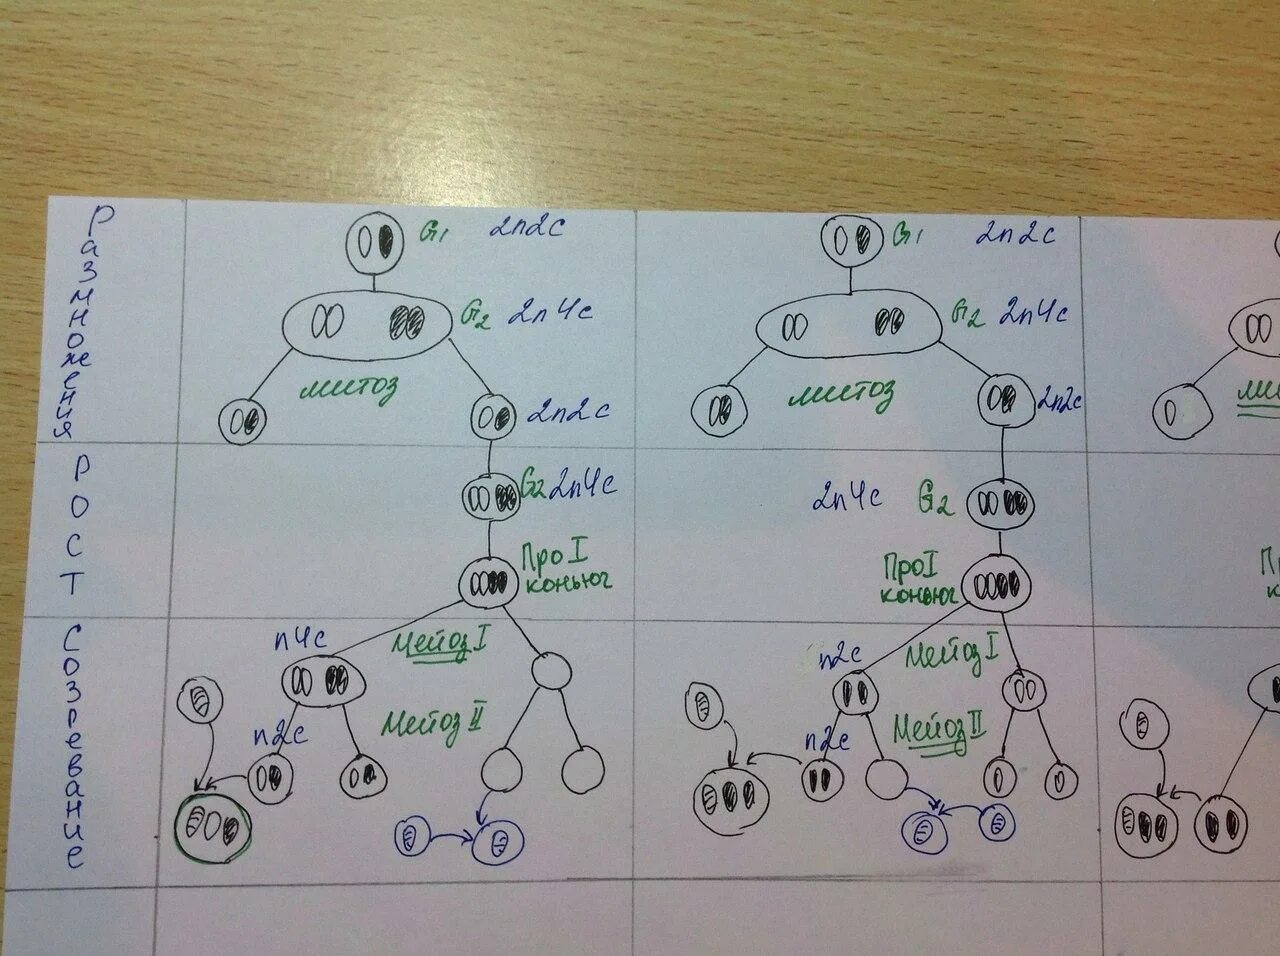 Размножения
G1 2n2c
G2 2n4c
митоз
2n2c
G1 2n2c
G2 2n4c
митоз
2n2c
Рост
G2 2n4c
Про I
конъюг
2n4c G2
Про I
конъюг
Созревание
n4c
Мейоз I
n2c
Мейоз II
n2c
Мейоз I
n2c
Мейоз II